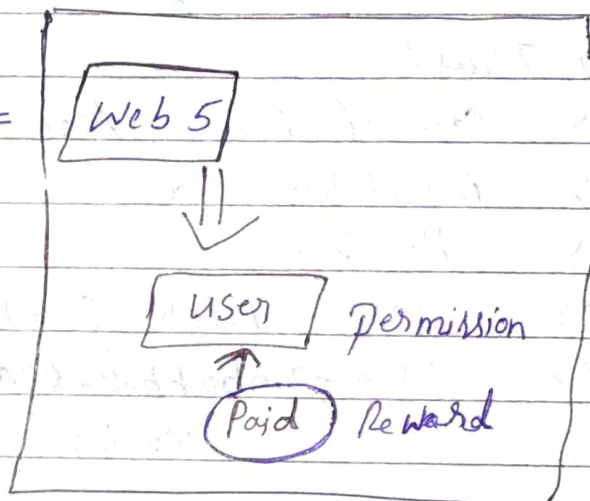 =
Web 5
user Permission
Paid Reward